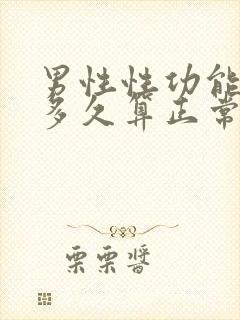 男性性功能
多久算正常
栗栗酱